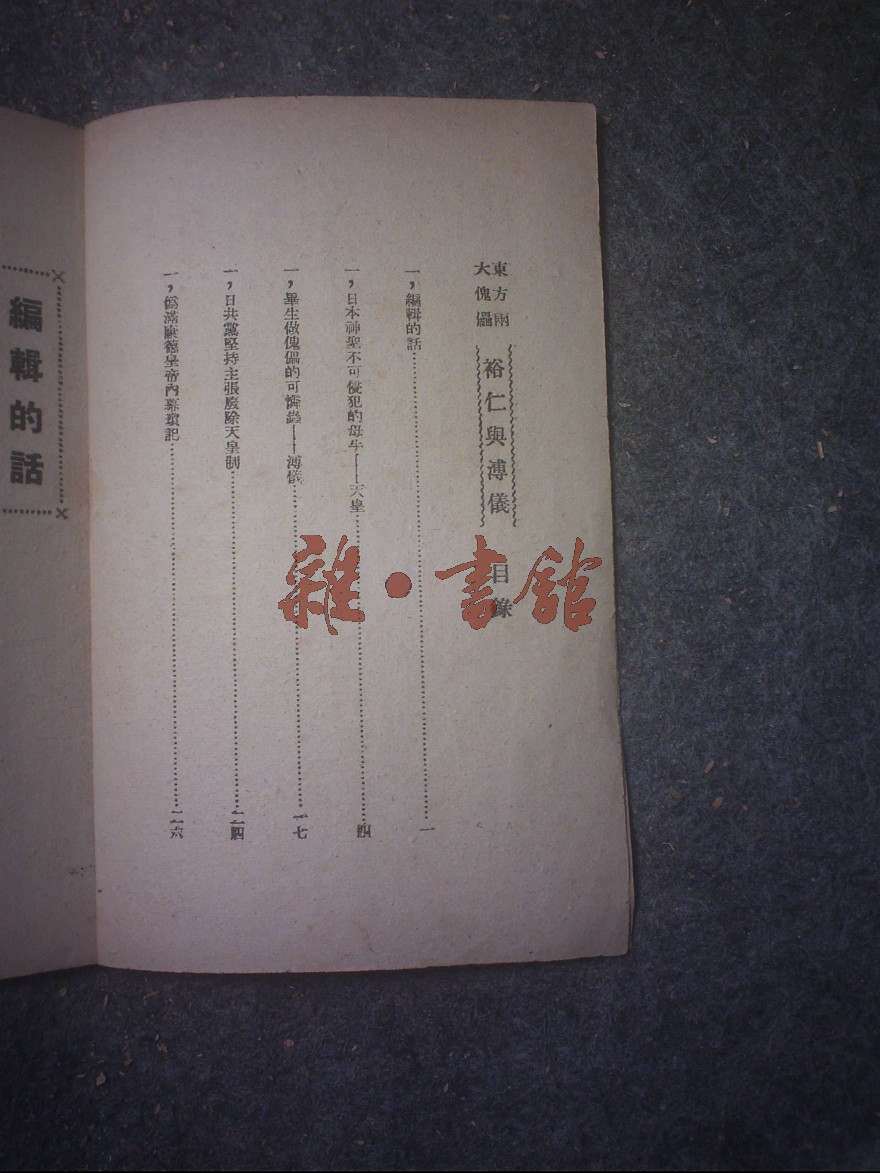 東方兩
大傀儡
裕仁與溥儀
目錄
一，編輯的話……一
一，日本神聖不可侵犯的母牛——天皇……四
一，畢生做傀儡的可憐蟲——溥儀……一七
一，日共黨堅持主張廢除天皇制……二四
一，僞滿康德皇帝內幕瑣記……二六
編輯的話
雜·書館